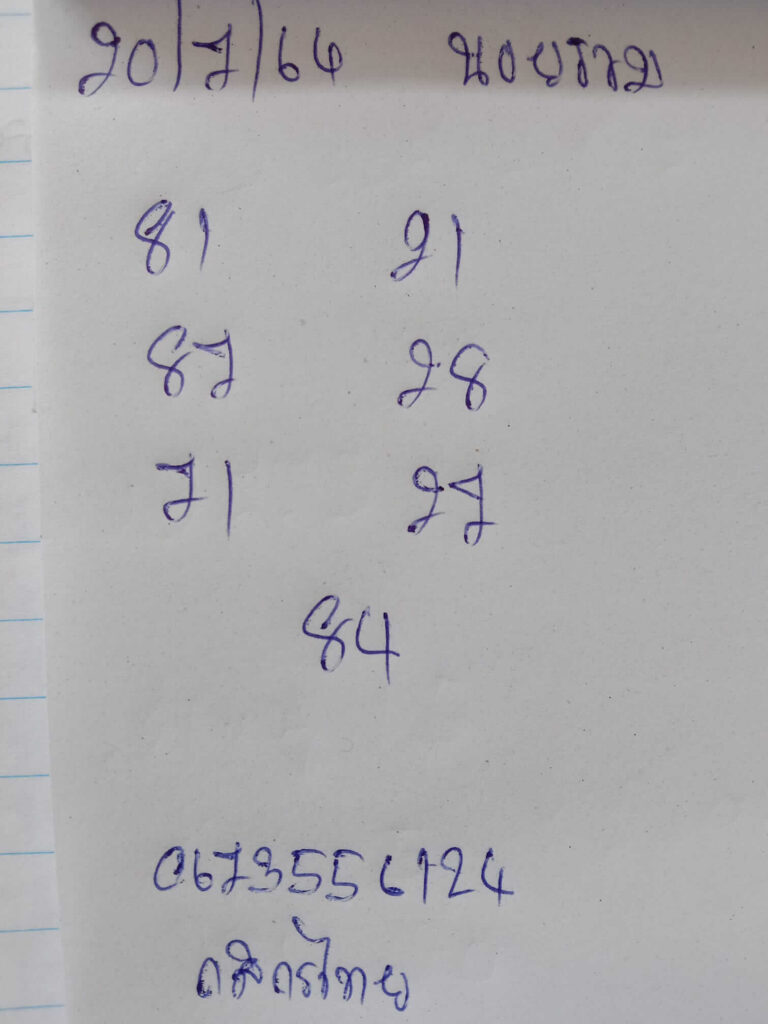 20/7/64 นอยรวม
81 21
87 28
71 27
84
0673556124
กสิกรไทย